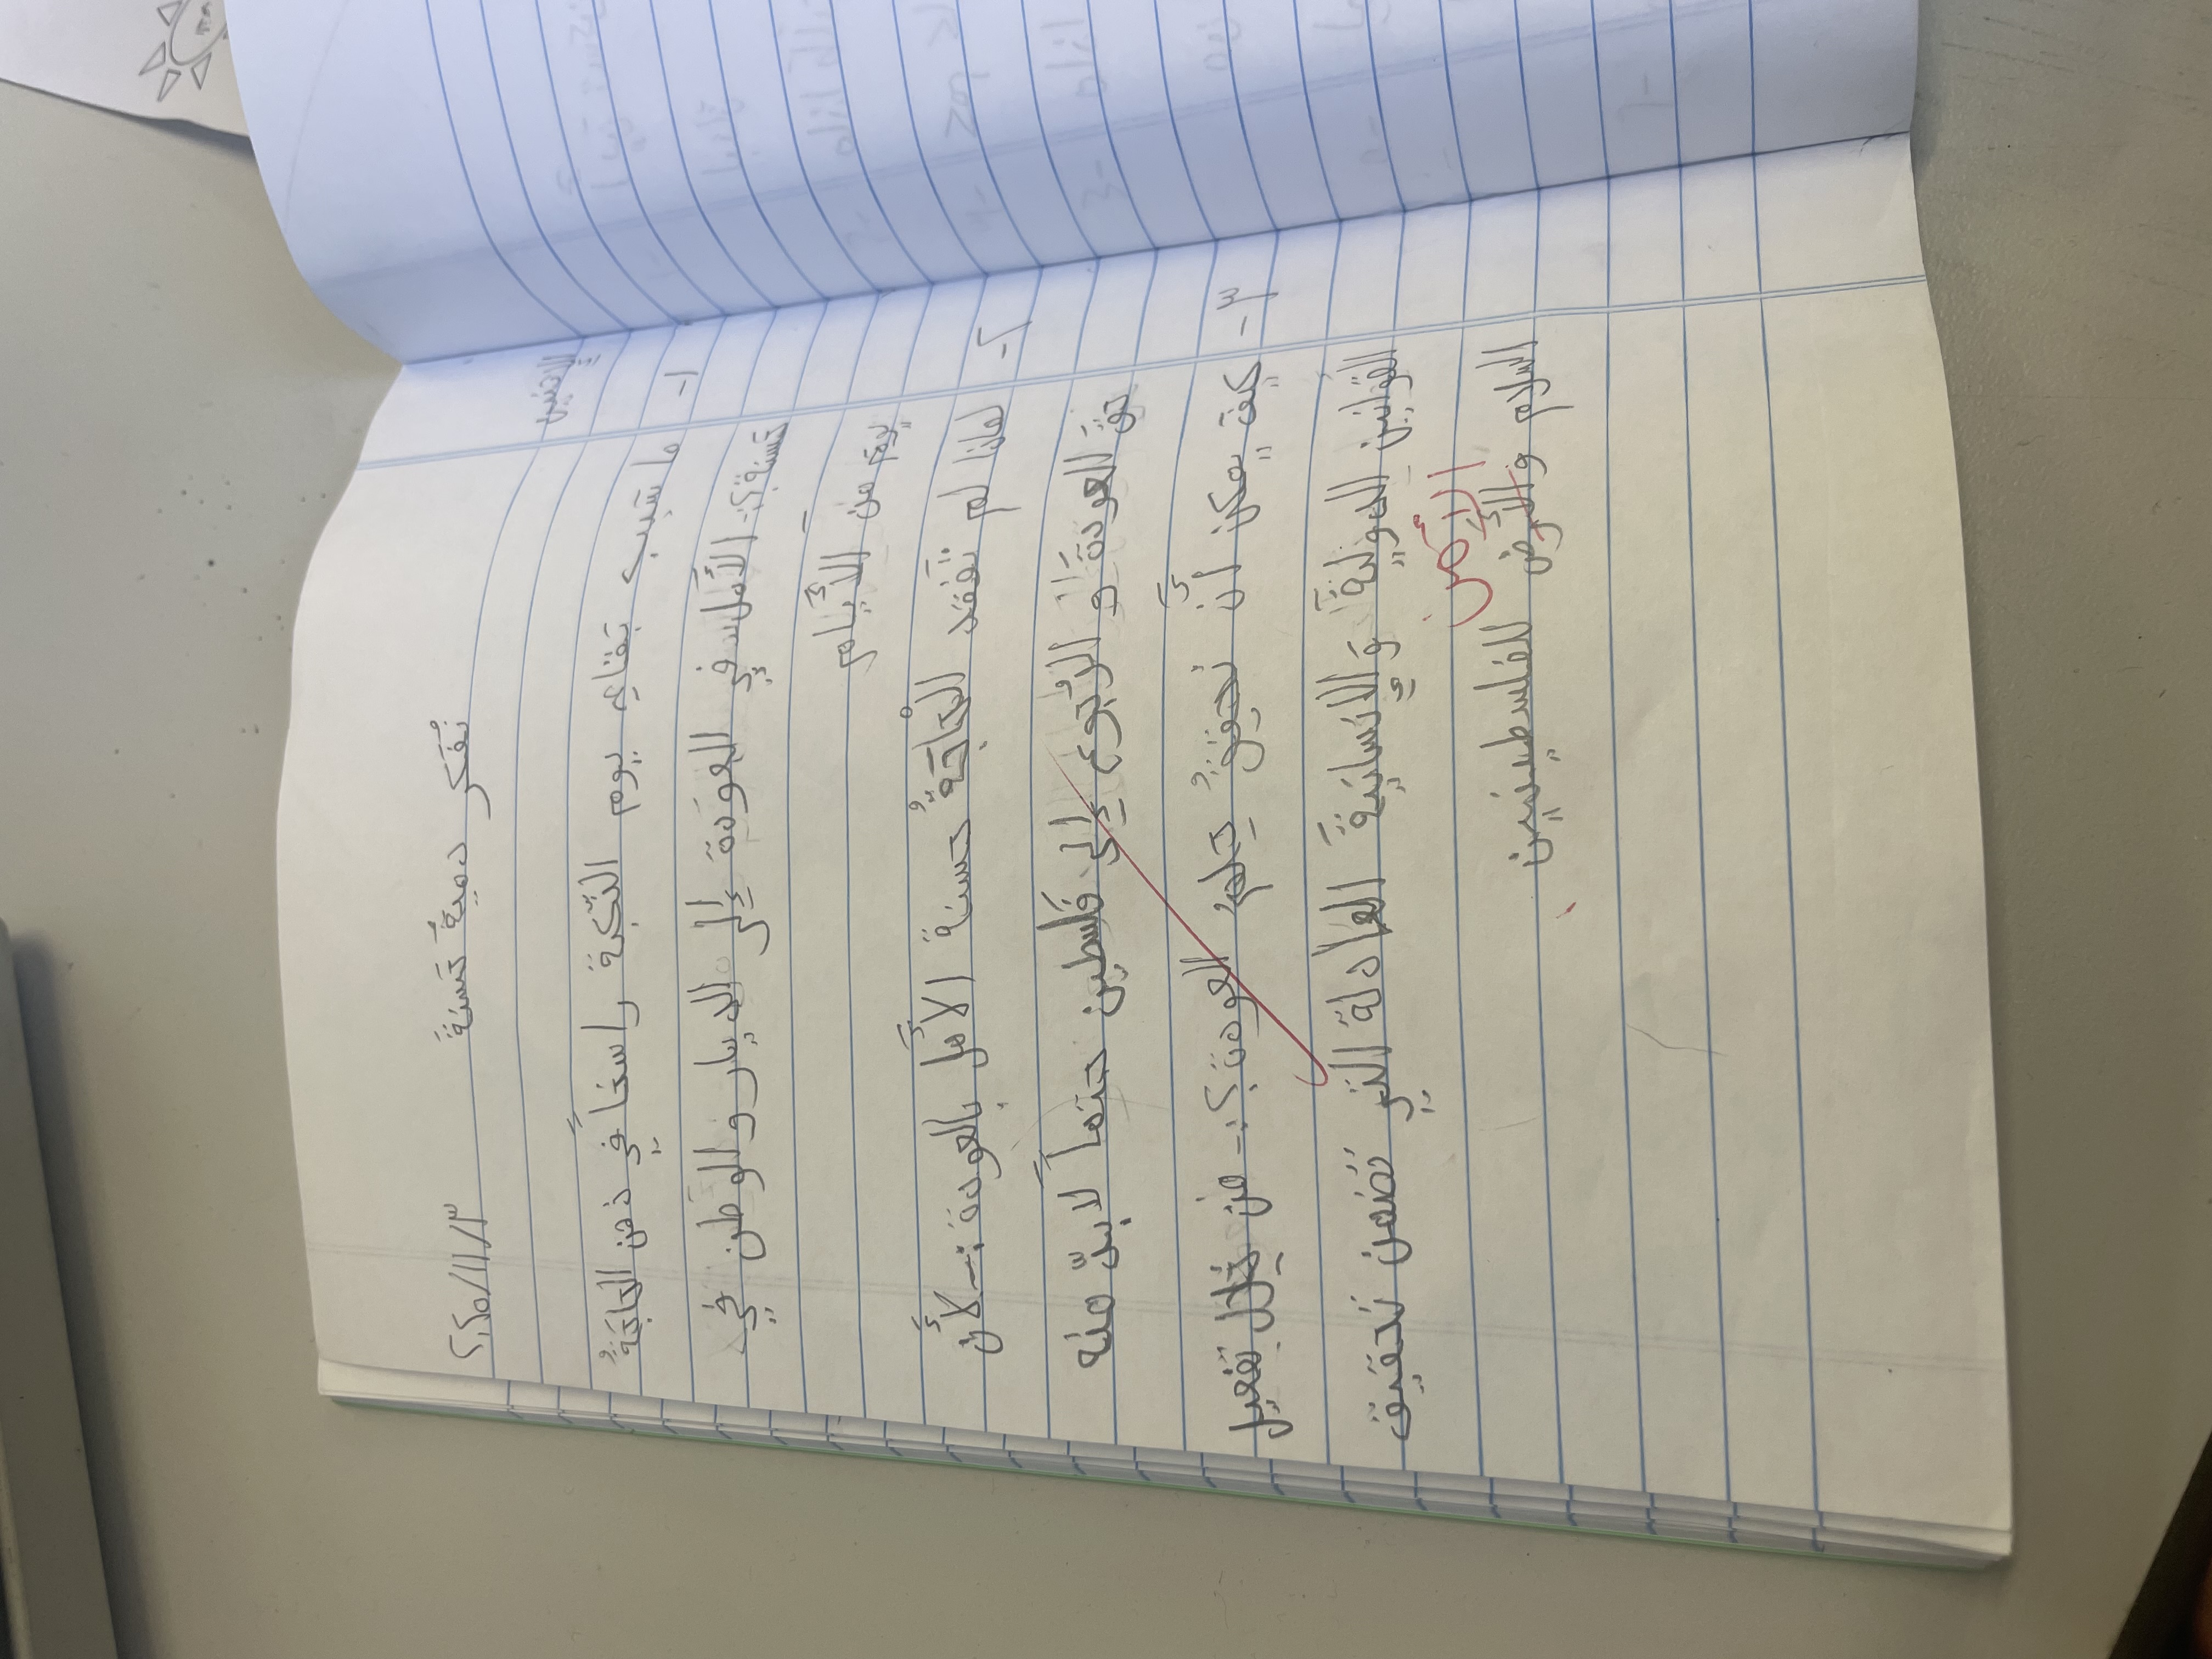 ٢٠٢٥/١١/٣
نُفَكر دمية حَسنَة
الإثنين
١- ما سَبب بقاء يوم النّكبة راسخاً في ذهن الحاجَّةُ
حَسنَة؟:- الأَمل في العَودة إلى الديار والوَطن في
يوم من الأَيام
٢- لماذا لم تَفقد الحْاجَّةُ حسنة الأَمل بالعودة:- لأَن
حق العودة و الرُجوع إلى فَلسطين حتماً لا بدّ منه
٣- كيف يمكن أَن نحققُ حلم العودة؟:- من خِلال تَفعيل
القَوانين الدولية وَالإنسانية العادلة التي تَضمن تَحقيق
الأرض
السلام والأَرض للفلسطينين